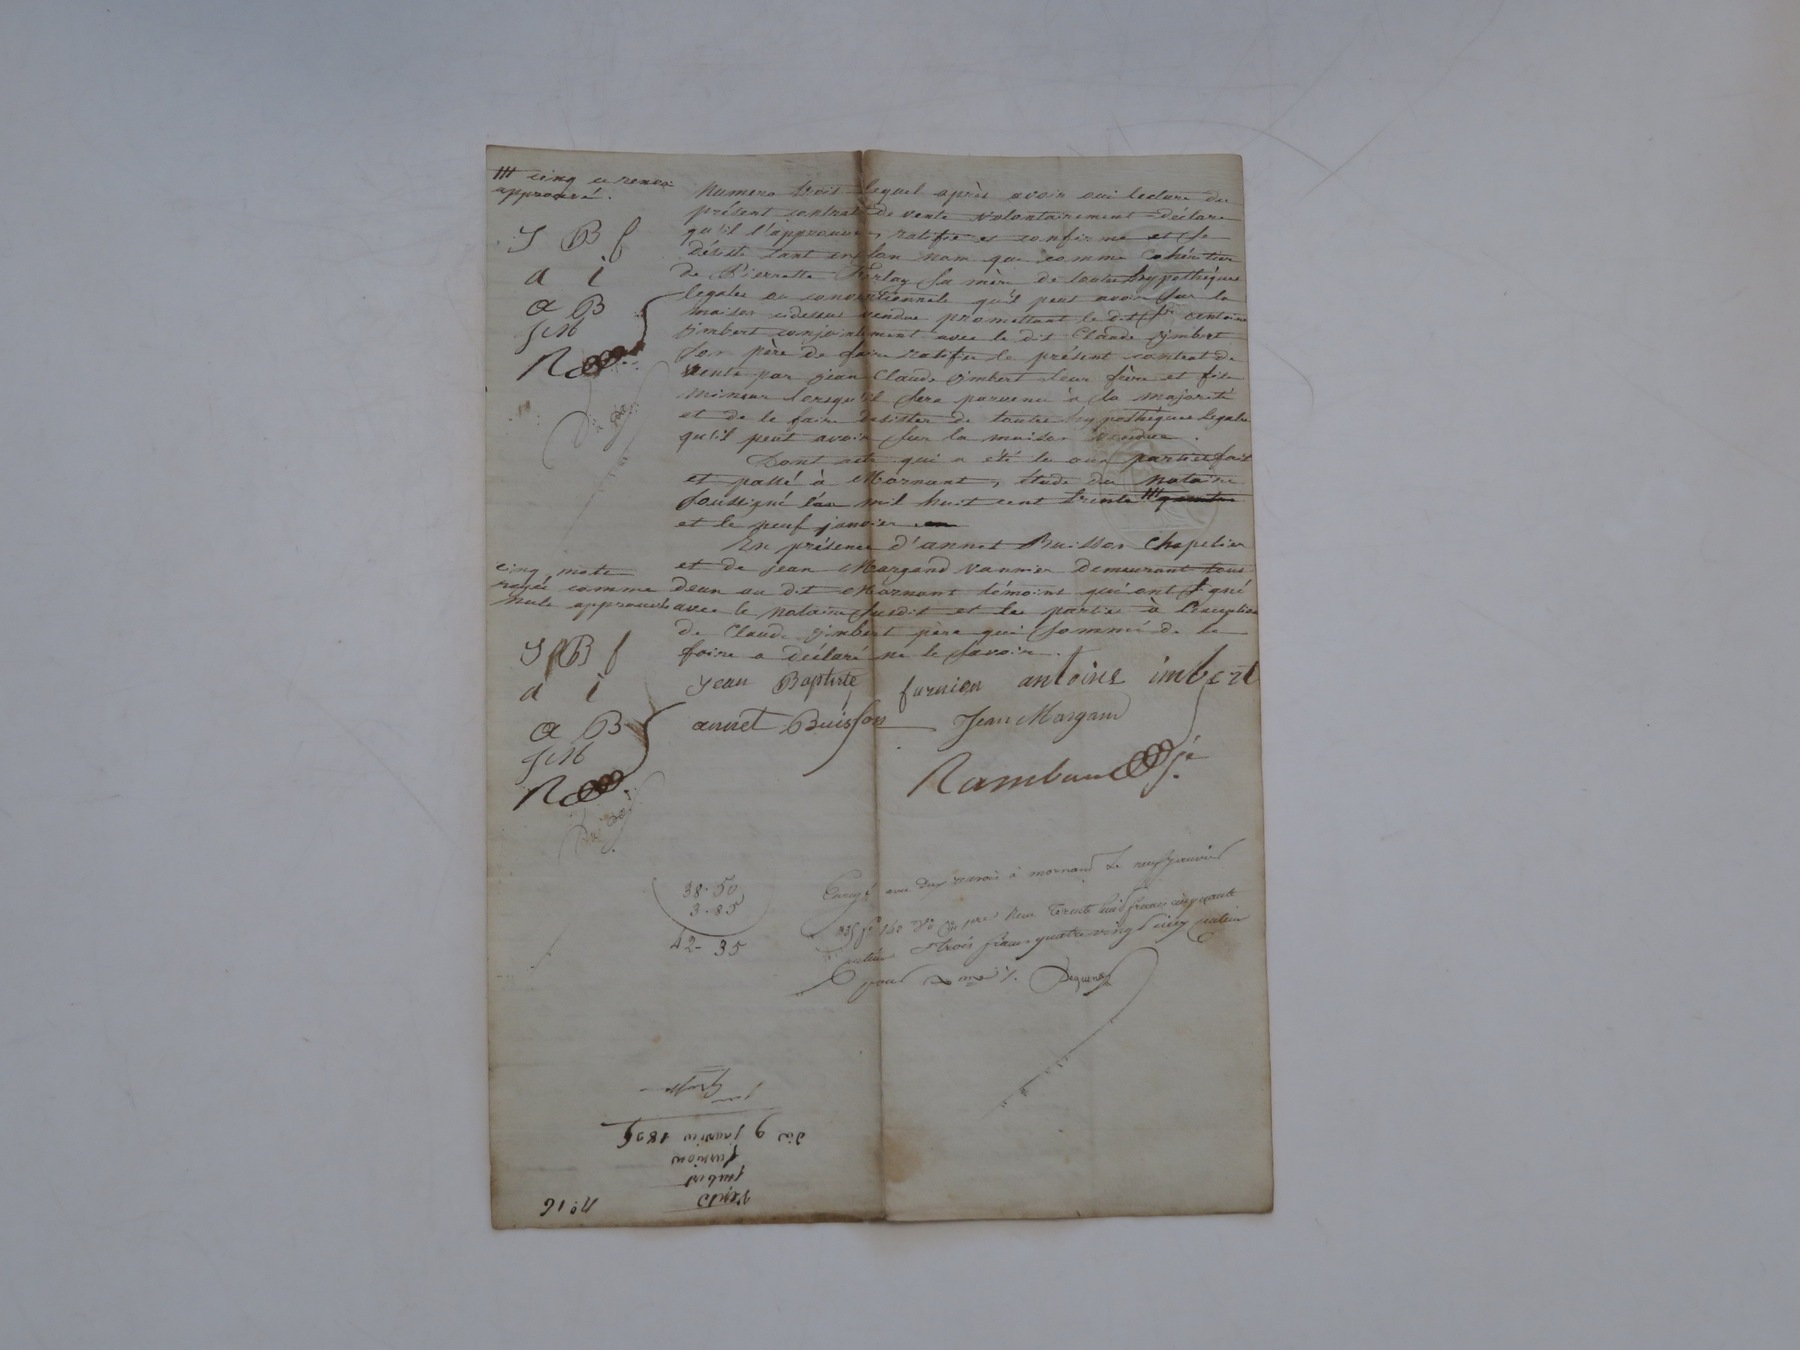 cinq ce renvoi
approuvé.
J B f
a i
a B
J M
R
numero trois lequel après avoir oui lecture du
présent contrat de vente volontairement déclare
qu'il l'approuve, ratifie et confirme et se
désiste tant en son nom que comme cohéritier
de Pierrette Ferlay sa mère de toutes hypothèques
legales ou conventionnele qu'il peut avoir sur la
maison cidessus vendue promettant le dit Sr antoine
jimbert conjointement avec le dit Claude jimbert
son père de faire ratifier le présent contrat de
vente par jean Claude jimbert leur frère et fils
mineur lorsqu'il sera parvenu à la majorité
et de le faire desister de toutes hypothèques legales
qu'il peut avoir sur la maison vendue.
Dont acte qui a été lu aux parties fait
et passé à Mornant, étude du notaire
soussigné l'an mil huit cent trente quatre
et le neuf janvier
En présence d'annet Buisson chapelier
et de jean Margand vannier demeurant tous
deux au dit Mornant témoins qui ont signé
avec le notaire susdit et les parties à l'exception
de Claude jimbert père qui sommé de le
faire a déclaré ne le savoir.
cinq mots
rayés comme
nuls approuvés
J B f
a i
a B
J M
R
jean Baptiste furnion antoine imbert
annet Buisson Jean Margand
Rambaud
38.50
3.85
42-35
Enregé avec deux renvois à mornant le neuf janvier
trente huit francs cinquante
trois francs quatre vingt cinq centimes
pour
N° 16
Vente
jmbert
furnion
du 9 janvier 1835